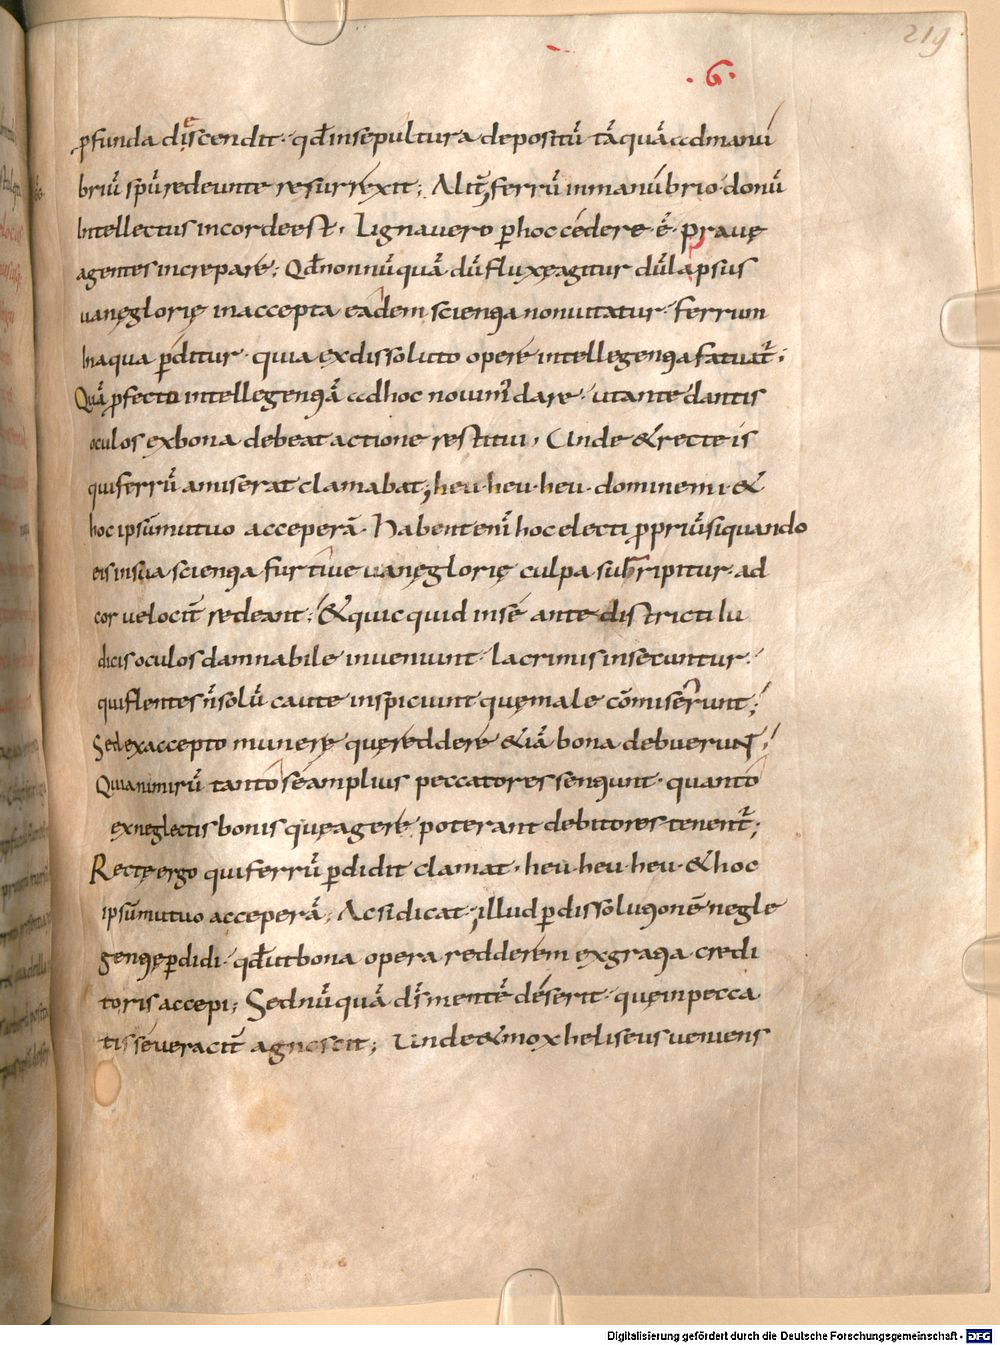 219
.6.
ꝓfunda discendit· qđ in sepultura depositū tāquā ad manu
briū spū redeunte resurrexit; Alit̄ ferrū in manubrio donū
Intellectus in corde est· Ligna vero ꝑ hoc cedere ē· pravę
agentes increpare; Qđ nonnūquā dū fluxę agitur dū lapsus
vanę glorię in accepta eadem scientia non vitatur· ferrum
In aqua ꝑditur· quia ex dissoluto opere intellegentia fatuat̄;
Quā ꝓfecto intellegentiā ad hoc novim̄ dare· ut ante dantis
oculos ex bona debeat actione restitui· Unde & recte is
qui ferrū amiserat clamabat; heu· heu· heu· domine mi· &
hoc ipsūm mutuo acceperā· Habent enī hoc electi ꝓpriū si quando
eis in sua scientia furtive vanę glorię culpa subripitur· ad
cor velocit̄ redeant; & quicquid in se ante districti Iu
dicis oculos damnabile inveniunt· lacrimis insecuntur·
qui flentes n̄ solū caute inspiciunt quę male cōmiserunt;
Sed ex accepto munere quę reddere & iā bona debuerunt;
Quia nimirū tanto se amplius peccatores sentiunt· quanto
ex neglectis bonis quę agere poterant debitores tenent̄;
Rectę ergo qui ferrū ꝑdidit clamat· heu· heu· heu· & hoc
ipsūm mutuo acceperā; Ac si dicat; illud ꝑ dissolutionē negle
gentię ꝑdidi· qđ ut bona opera redderem ex gratia credi
toris accepi; Sed nūquā dr̄s mentē deserit· quę in pecca
tis se veracit̄ agnoscit; Unde & mox heliseus veniens
Digitalisierung gefördert durch die Deutsche Forschungsgemeinschaft - DFG